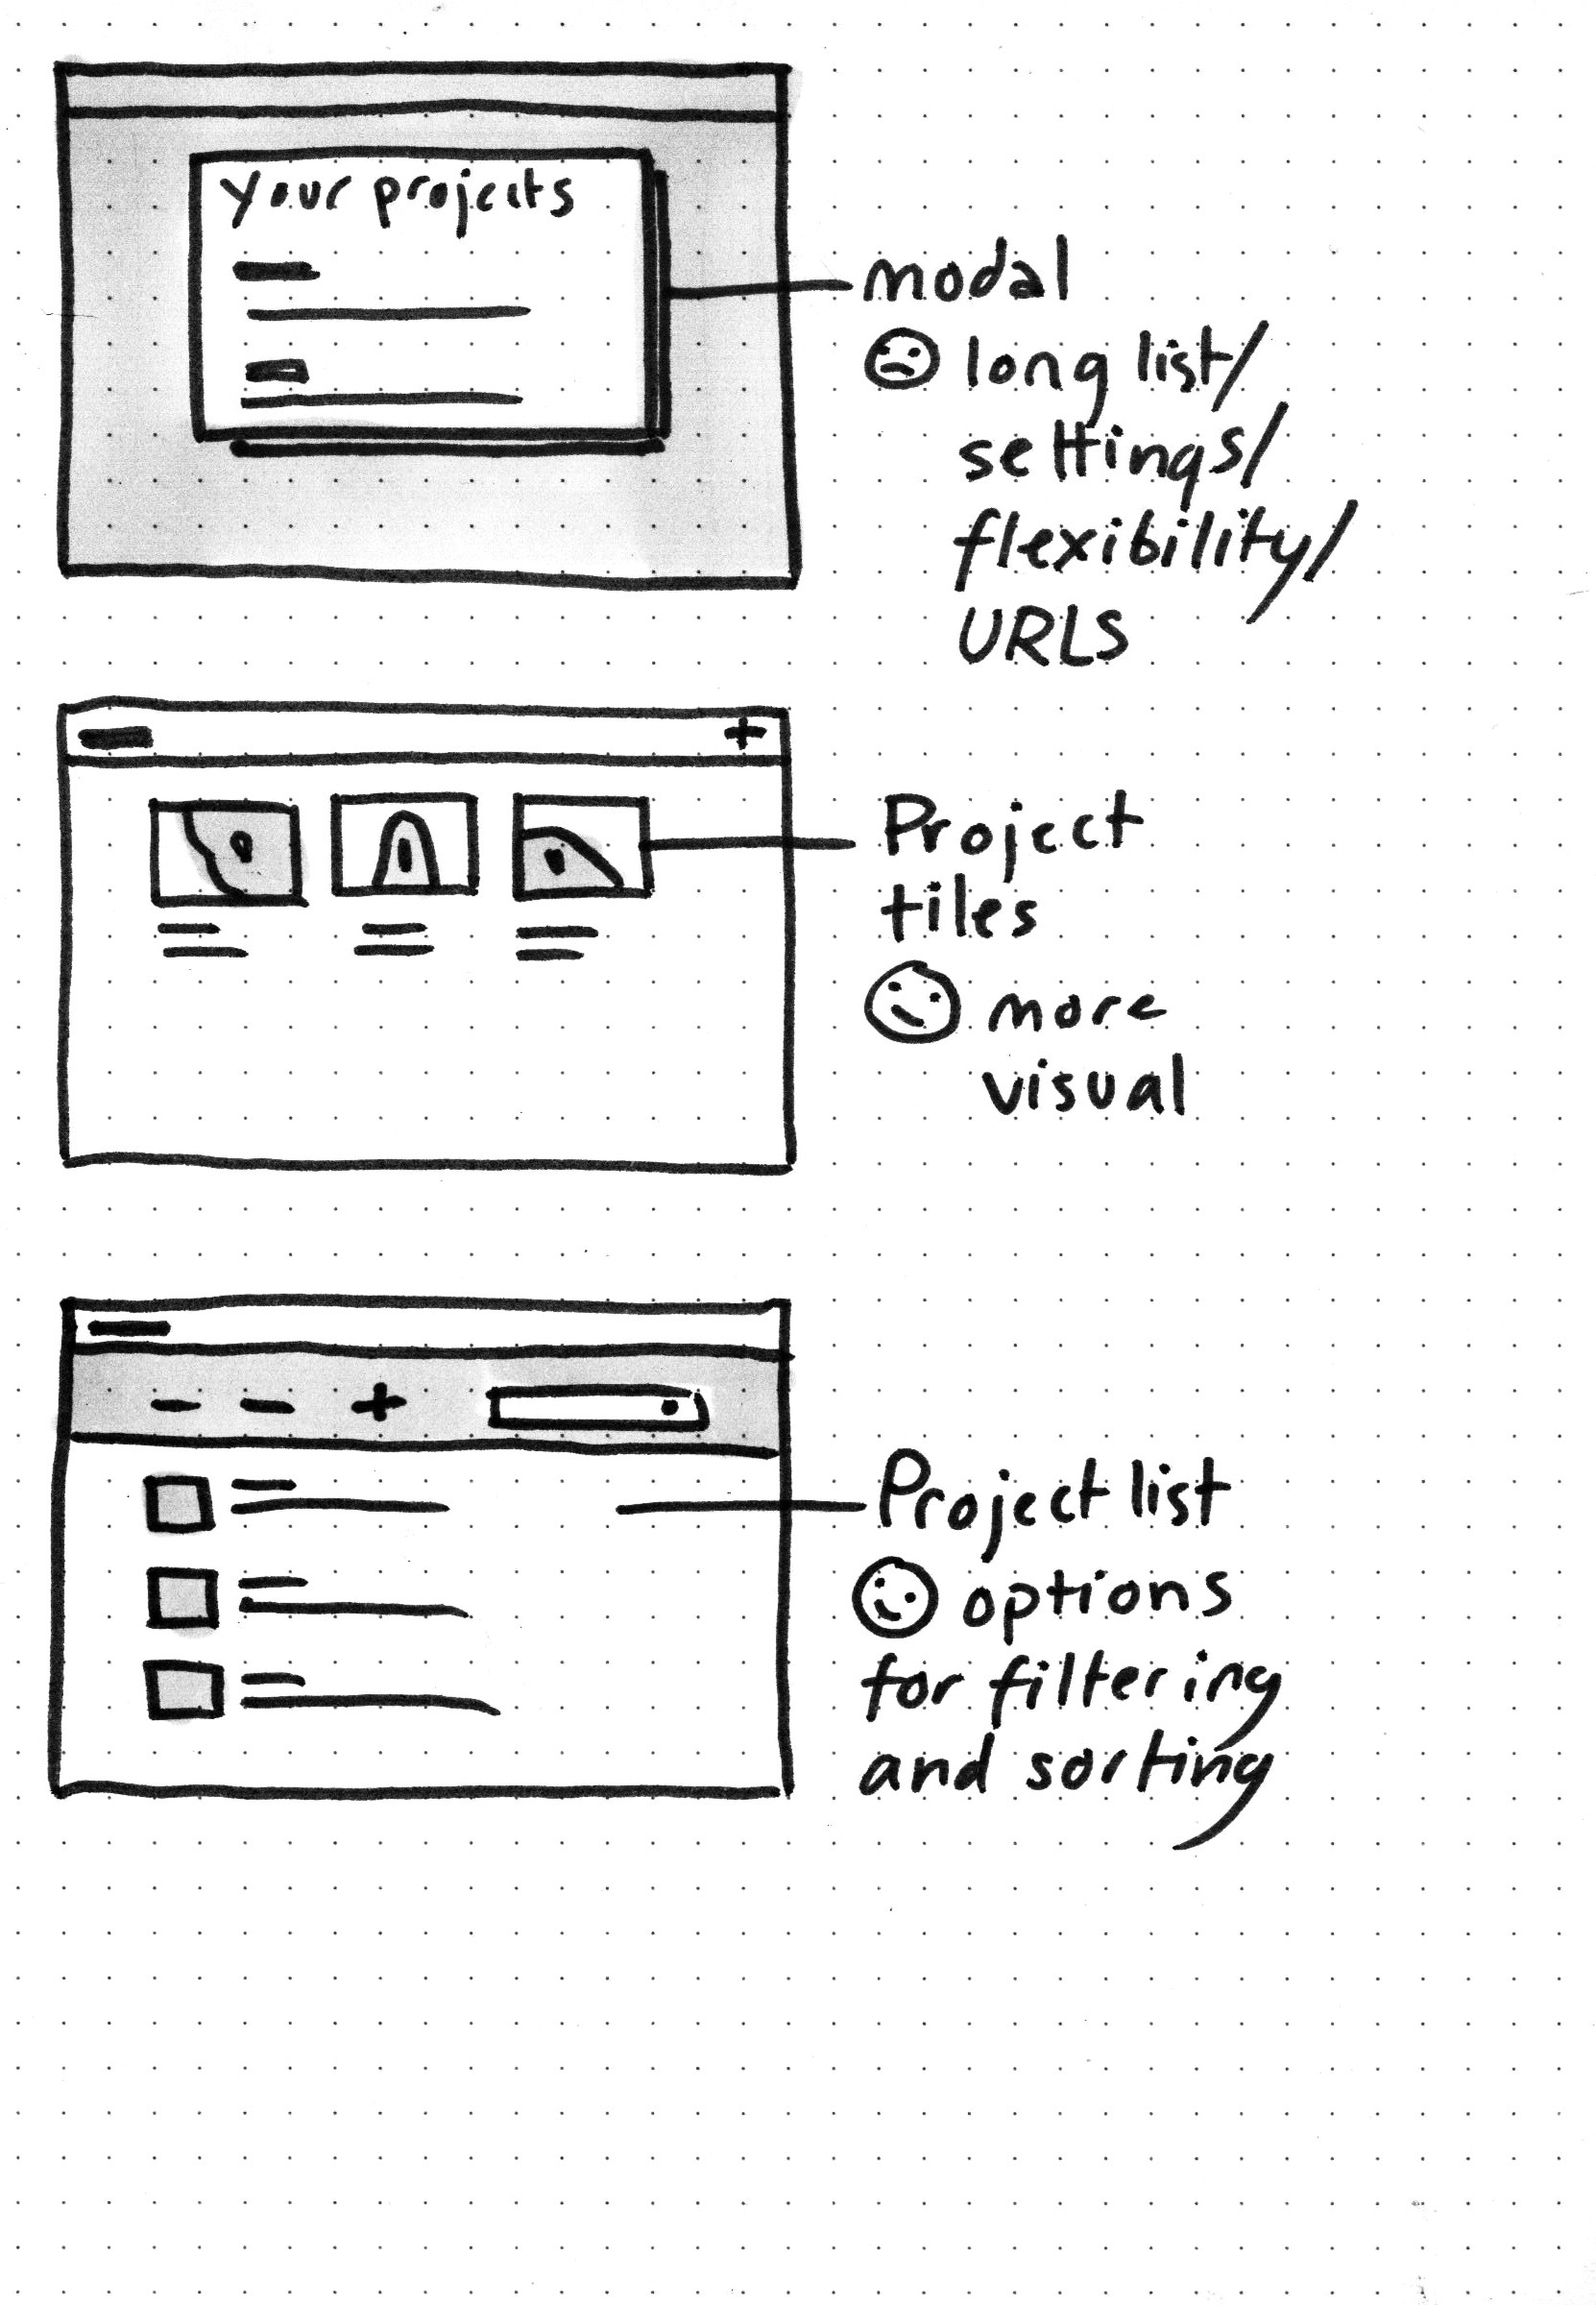 Your projects
modal
long list/
settings/
flexibility/
URLS
Project
tiles
more
visual
Project list
options
for filtering
and sorting